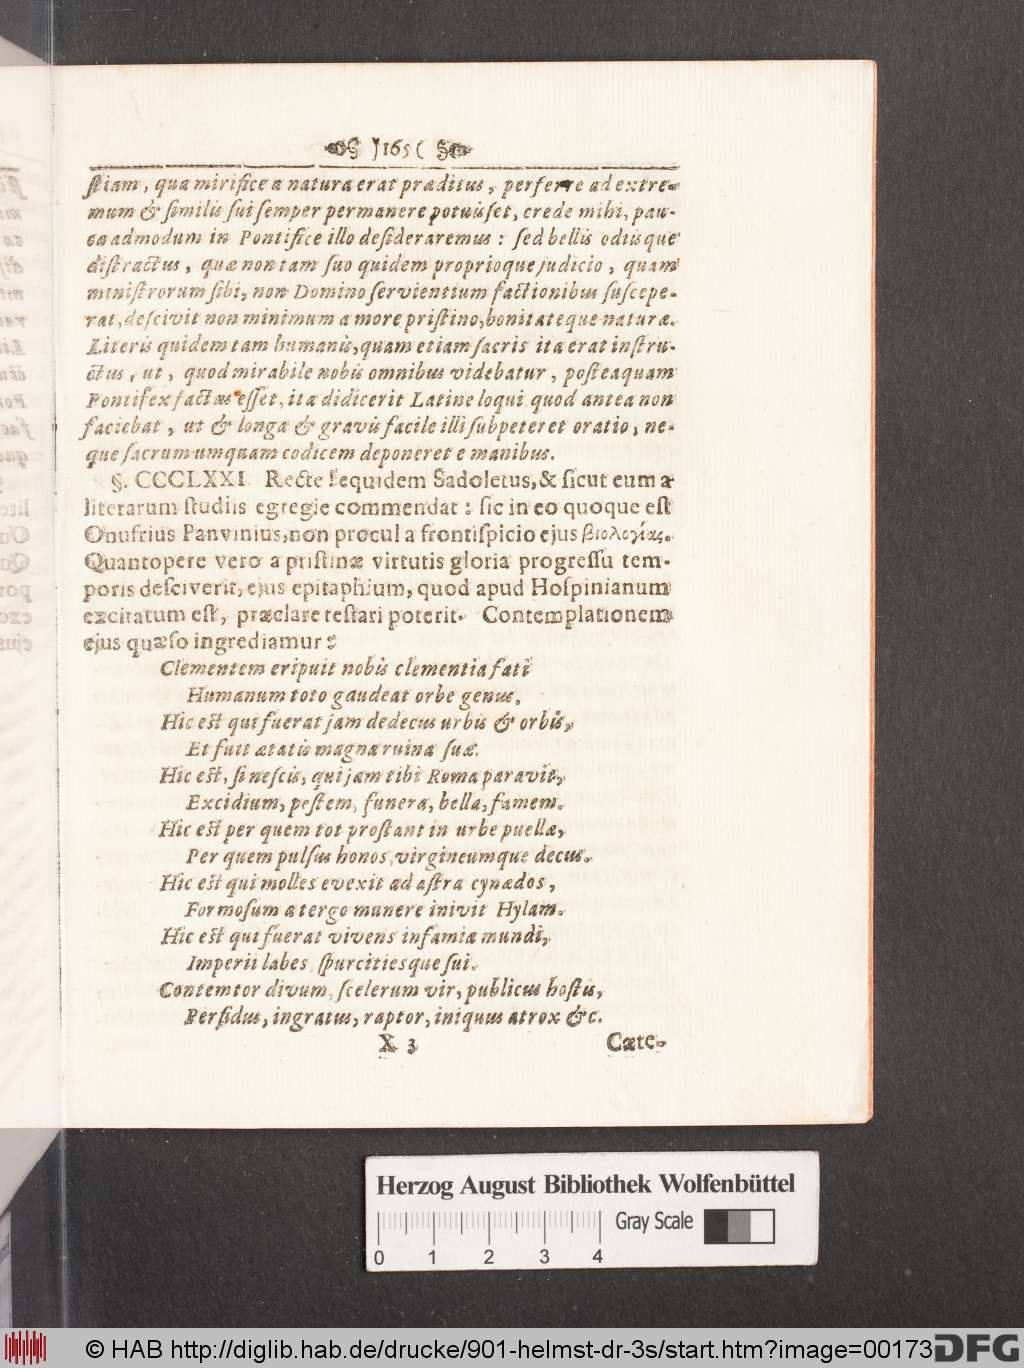 )165(
stiam, qua mirifice a natura erat præditus, perferre ad extre-
mum & similis sui semper permanere potuisset, crede mihi, pau-
ca admodum in Pontifice illo desideraremus: sed bellis odiisque
distractus, quæ non tam suo quidem proprioque judicio, quam
ministrorum sibi, non Domino servientium factionibus suscepe-
rat, descivit non minimum a more pristino, bonitateque naturæ.
Literis quidem tam humanis, quam etiam sacris ita erat instru-
ctus, ut, quod mirabile nobis omnibus videbatur, posteaquam
Pontifex factus esset, ita didicerit Latine loqui quod antea non
faciebat, ut & longa & gravis facile illi subpeteret oratio, ne-
que sacrum umquam codicem deponeret e manibus.
§. CCCLXXI. Recte sequidem Sadoletus, & sicut eum a
literarum studiis egregie commendat: sic in eo quoque est
Onufrius Panvinius, non procul a frontispicio ejus βιολογίας.
Quantopere vero a pristinæ virtutis gloria progressu tem-
poris desciverit, ejus epitaphium, quod apud Hospinianum
excitatum est, præclare testari poterit. Contemplationem
ejus quæso ingrediamur:
Clementem eripuit nobis clementia fati
Humanum toto gaudeat orbe genus.
Hic est qui fuerat jam dedecus urbis & orbis,
Et fuit ætatis magna ruina suæ.
Hic est, si nescis, qui jam tibi Roma paravit,
Excidium, pestem, funera, bella, famem.
Hic est per quem tot prostant in urbe puellæ,
Per quem pulsus honos, virgineumque decus.
Hic est qui molles evexit ad astra cynædos,
Formosum a tergo munere inivit Hylam.
Hic est qui fuerat vivens infamia mundi,
Imperii labes, spurcitiesque sui.
Contemtor divum, scelerum vir, publicus hostis,
Perfidus, ingratus, raptor, iniquus atrox &c.
X 3 Cæte-
Herzog August Bibliothek Wolfenbüttel
Gray Scale
0 1 2 3 4
© HAB http://diglib.hab.de/drucke/901-helmst-dr-3s/start.htm?image=00173
DFG